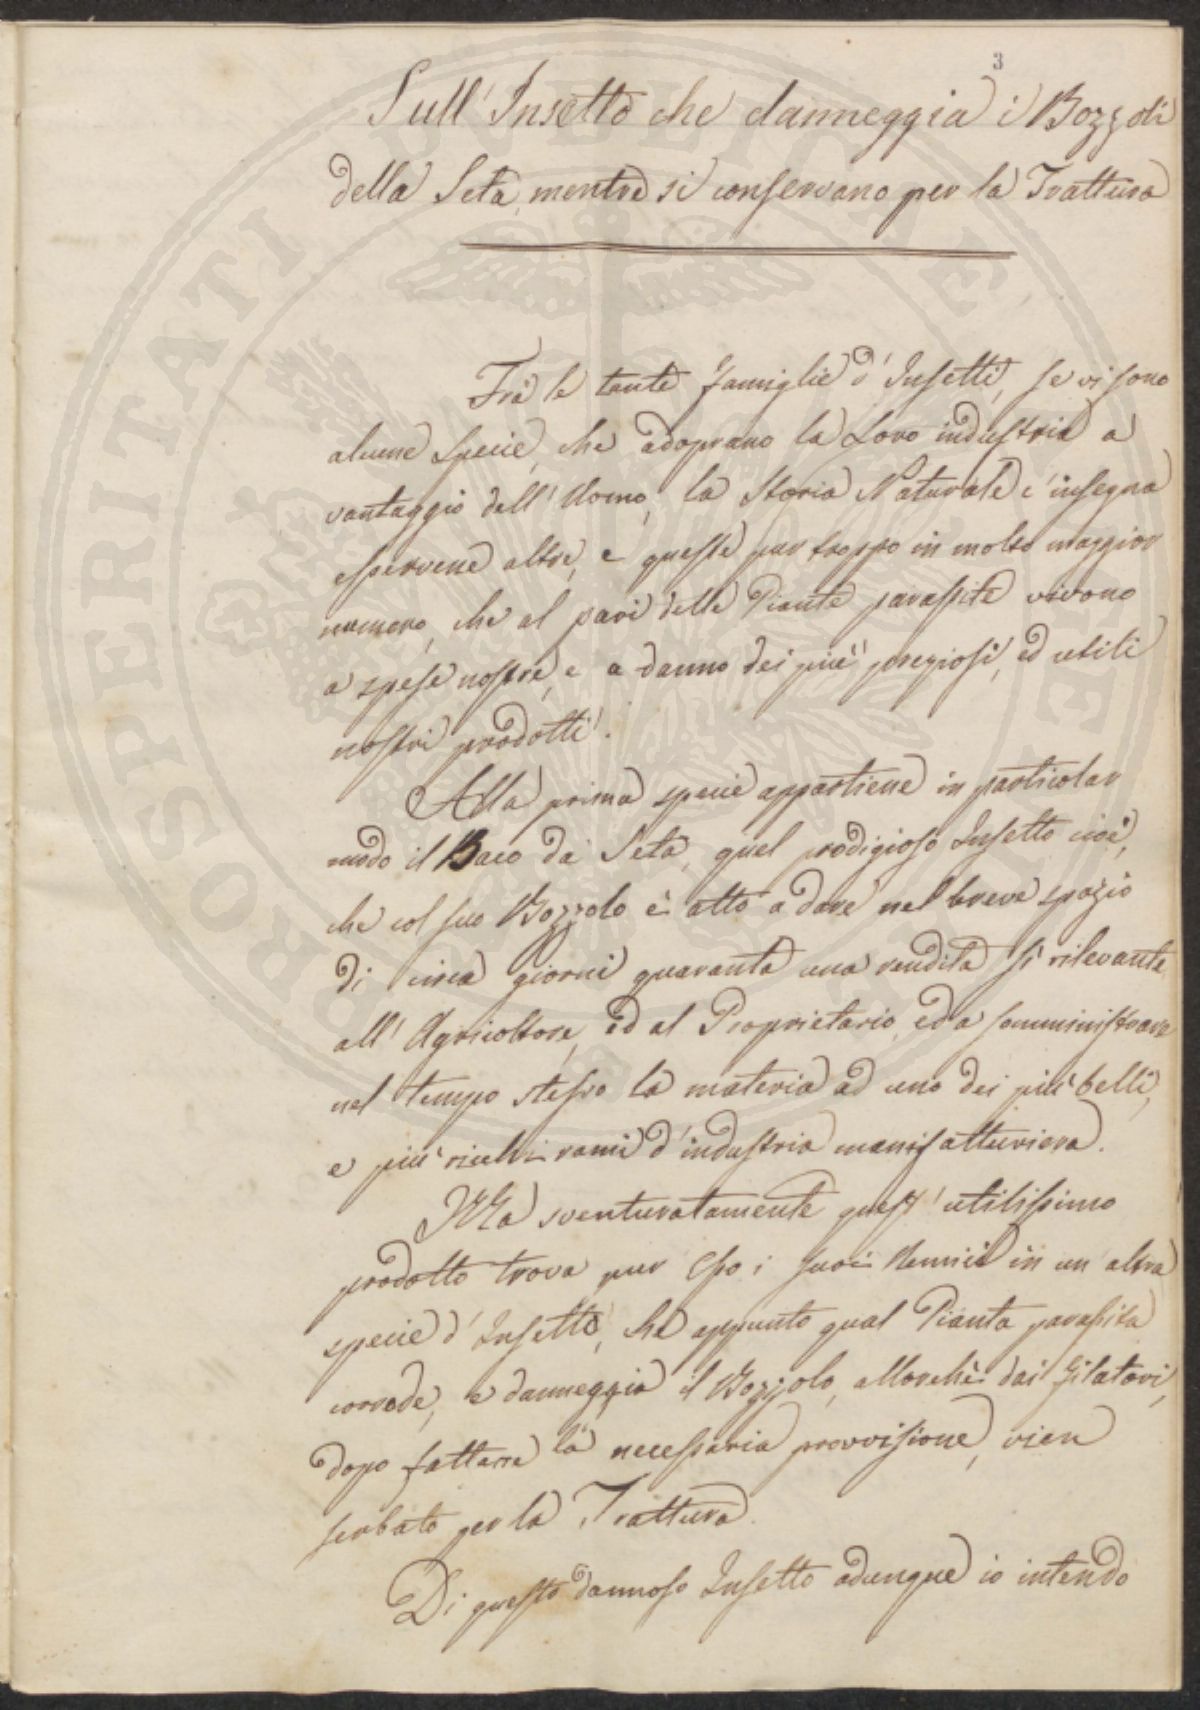 3
Sull' Insetto che danneggia i Bozzoli
della Seta, mentre si conservano per la Trattura
Frà le tante famiglie d' Insetti, se vi sono
alcune specie, che adoprano la Loro industria a
vantaggio dell' Uomo, la Storia Naturale c' insegna
esservene altre, e queste pur troppo in molto maggior
numero, che al pari delle Piante parassite vivono
a spese nostre, e a danno dei più pregiosi, ed utili
nostri prodotti.
Alla prima specie appartiene in particolar
modo il Baco da Seta, quel prodigioso Insetto cioè,
che col suo Bozzolo è atto a dare nel breve spazio
di circa giorni quaranta una rendita sì rilevante
all' Agricoltore, ed al Proprietario, ed a somministrare
nel tempo stesso la materia ad uno dei più belli,
e più ricchi rami d' industria manifatturiera.
Ma sventuratamente quest' utilissimo
prodotto trova pur Esso i suoi Nemici in un altra
specie d' Insetto, che appunto qual Pianta parassita
corrode, e danneggia il Bozzolo, allorchè dai filatori,
dopo fattane la necessaria provvisione, vien
serbato per la Trattura.
Di questo dannoso Insetto adunque io intendo
PROSPERITATI PUBLICAE